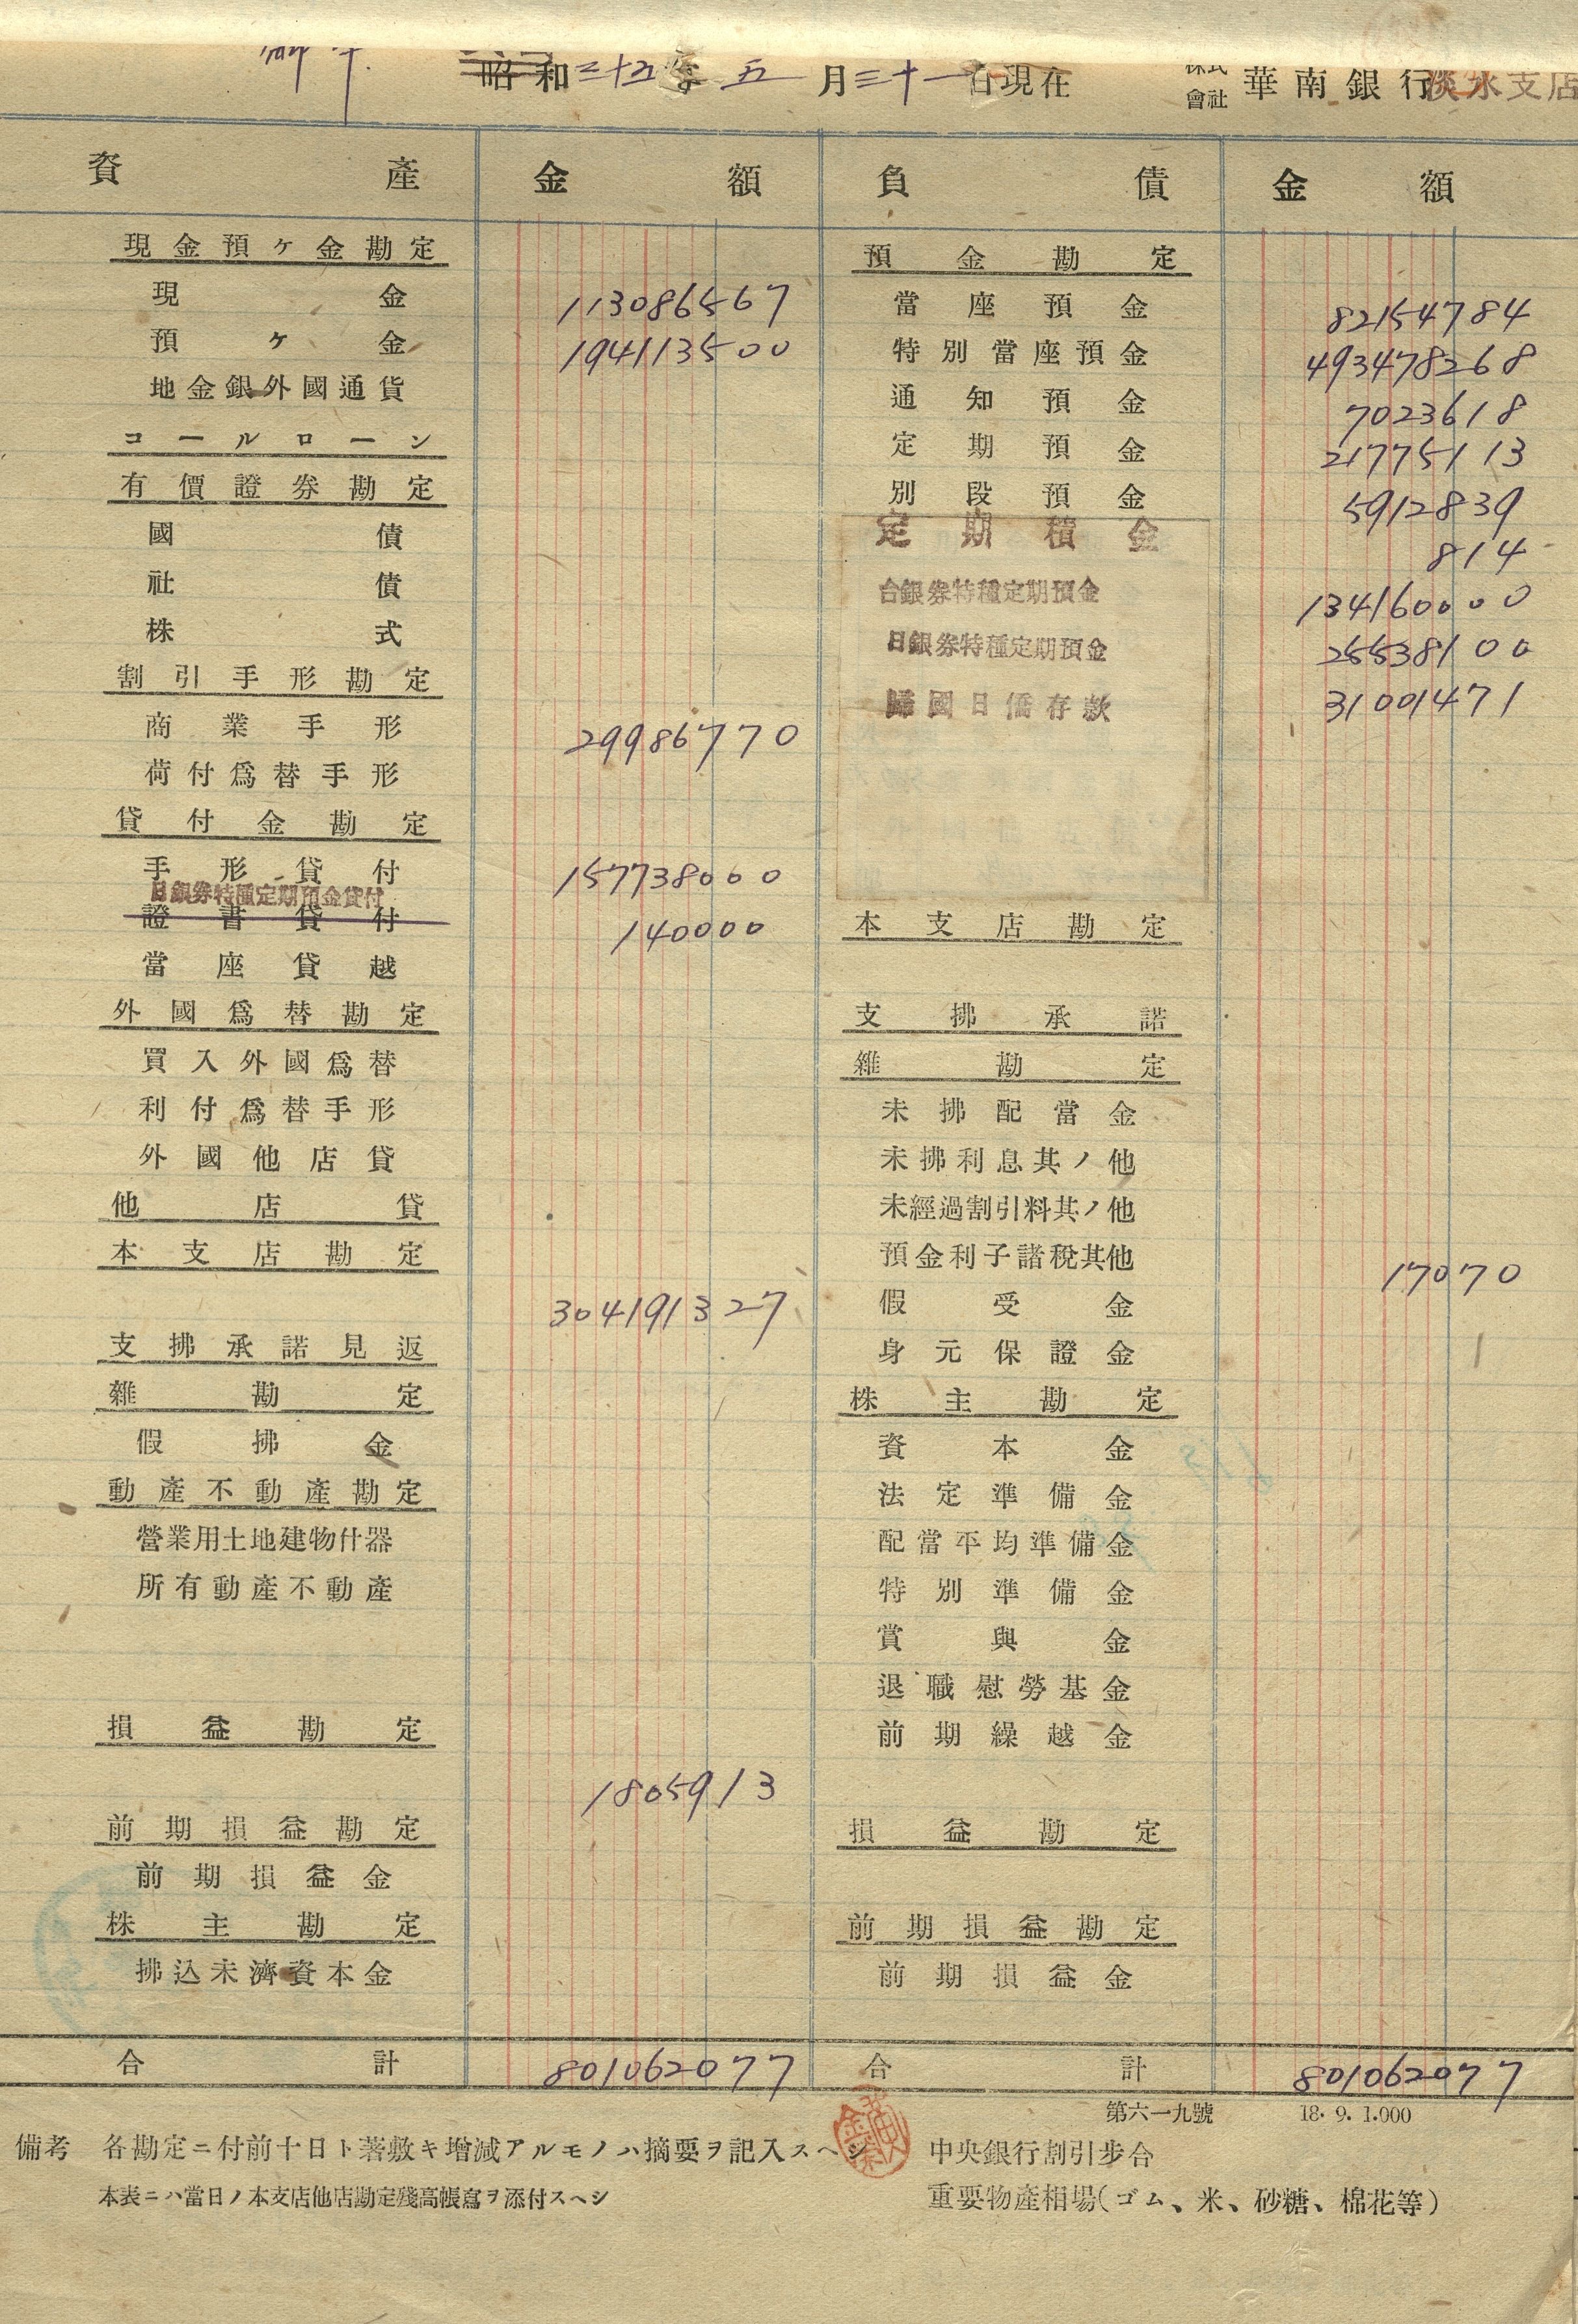 昭和三十五年五月三十一日現在 株式會社 華南銀行淡水支店
資產 金額 負債 金額
現金預ヶ金勘定
預金勘定
現金 113086567
當座預金 82154784
預ヶ金 194113500
特別當座預金 493478268
地金銀外國通貨
通知預金 7023618
コールローン
定期預金 21775113
有價證券勘定
別段預金 5912839
國債
定期積金 814
社債
台銀券特種定期預金 134160000
株式
日銀券特種定期預金 25538100
割引手形勘定
歸國日僑存款 31001471
商業手形 29986770
荷付爲替手形
貸付金勘定
手形貸付 157738000
日銀券特種定期預金貸付
證書貸付 140000
本支店勘定
當座貸越
外國爲替勘定
支拂承諾
買入外國爲替
雜勘定
利付爲替手形
未拂配當金
外國他店貸
未拂利息其ノ他
他店貸
未經過割引料其ノ他
本支店勘定 304191327
預金利子諸稅其他 17070
假受金
支拂承諾見返
身元保證金
雜勘定
株主勘定
假拂金
資本金
動產不動產勘定
法定準備金
營業用土地建物什器
配當平均準備金
所有動產不動產
特別準備金
賞與金
退職慰勞基金
損益勘定 1805913
前期繰越金
前期損益勘定
損益勘定
前期損益金
株主勘定
前期損益勘定
拂込未濟資本金
前期損益金
合計 801062077 合計 801062077
第六一九號 18. 9. 1.000
備考 各勘定ニ付前十日ト著敷キ增減アルモノハ摘要ヲ記入スヘシ 中央銀行割引步合
本表ニハ當日ノ本支店他店勘定殘高帳寫ヲ添付スヘシ 重要物產相場(ゴム、米、砂糖、棉花等)